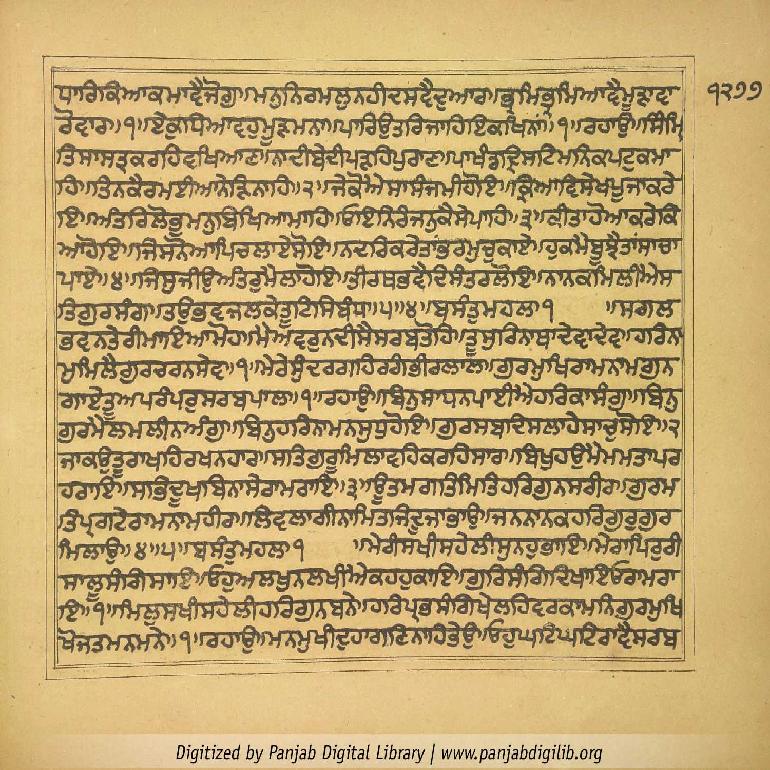 ਧਾਰਿਕਿਆਕਮਾਵੈਜੋਗੁ॥ਮਨੁਨਿਰਮਲੁਨਹੀਦਸਵੈਦੁਆਰ॥ਭ੍ਰਮਿਭ੍ਰਮਿਆਵੈਮੂੜ੍ਹਾਵਾ
੧੨੭੭
ਰੋਵਾਰ॥੧॥ਏਕੁਧਿਆਵਹੁਮੂੜ੍ਹਮਨਾ॥ਪਾਰਿਉਤਰਿਜਾਹਿਇਕਖਿਨਾਂ॥੧॥ਰਹਾਉ॥ਸਿੰਮ੍ਰਿ
ਤਿਸਾਸਤ੍ਰਕਰਹਿਵਖਿਆਣ॥ਨਾਦੀਬੇਦੀਪੜ੍ਹਹਿਪੁਰਾਣ॥ਪਾਖੰਡਦ੍ਰਿਸਟਿਮਨਿਕਪਟੁਕਮਾ
ਹਿ॥ਤਿਨਕੈਰਮਈਆਨੇੜਿਨਾਹਿ॥੨॥ਜੇਕੋਐਸਾਸੰਜਮੀਹੋਇ॥ਕ੍ਰਿਆਵਿਸੇਖਪੂਜਾਕਰੇ
ਇ॥ਅੰਤਰਿਲੋਭੁਮਨੁਬਿਖਿਆਮਾਹਿ॥ਓਇਨਿਰੰਜਨੁਕੈਸੇਪਾਹਿ॥੩॥ਕੀਤਾਹੋਆਕਰੇਕਿ
ਆਹੋਇ॥ਜਿਸਨੋਆਪਿਚਲਾਏਸੋਇ॥ਨਦਰਿਕਰੇਤਾਂਭਰਮੁਚੁਕਾਏ॥ਹੁਕਮੈਬੂਝੈਤਾਂਸਾਚਾ
ਪਾਏ॥੪॥ਜਿਸੁਜੀਉਅੰਤਰੁਮੈਲਾਹੋਇ॥ਤੀਰਥਭਵੈਦਿਸੰਤਰਲੋਇ॥ਨਾਨਕਮਿਲੀਐਸ
ਤਿਗੁਰਸੰਗ॥ਤਉਭਵਜਲਕੇਤੂਟਸਿਬੰਧ॥੫॥੪॥ਬਸੰਤੁਮਹਲਾ੧ ॥ਸਗਲ
ਭਵਨਤੇਰੀਮਾਇਆਮੋਹ॥ਮੈਅਵਰੁਨਦੀਸੈਸਰਬਤੋਹਿ॥ਤੂਸੁਰਿਨਾਥਾਦੇਵਾਦੇਵ॥ਹਰਿਨਾ
ਮੁਮਿਲੈਗੁਰਚਰਨਸੇਵ॥੧॥ਮੇਰੇਸੁੰਦਰਗਹਿਰਗੰਭੀਰਲਾਲ॥ਗੁਰਮੁਖਿਰਾਮਨਾਮਗੁਨ
ਗਾਏਤੂਅਪਰੰਪਰੁਸਰਬਪਾਲ॥੧॥ਰਹਾਉ॥ਬਿਨੁਸਾਧਨਪਾਈਐਹਰਿਕਾਸੰਗੁ॥ਬਿਨੁ
ਗੁਰਮੈਲਮਲੀਨਅੰਗੁ॥ਬਿਨੁਹਰਿਨਾਮਨਸੁਧੁਹੋਇ॥ਗੁਰਸਬਦਿਸਲਾਹੇਸਾਚੁਸੋਇ॥੨
ਜਾਕਉਤੂਰਾਖਹਿਰਖਨਹਾਰ॥ਸਤਿਗੁਰੂਮਿਲਾਵਹਿਕਰਹਿਸਾਰ॥ਬਿਖੁਹਉਮੈਮਮਤਾਪਰ
ਹਰਾਇ॥ਸਭਿਦੂਖਬਿਨਾਸੇਰਾਮਰਾਇ॥੩॥ਊਤਮਗਤਿਮਿਤਿਹਰਿਗੁਨਸਰੀਰ॥ਗੁਰਮ
ਤਿਪ੍ਰਗਟੇਰਾਮਨਾਮਹੀਰ॥ਲਿਵਲਾਗੀਨਾਮਿਤਜਿਦੂਜਾਭਾਉ॥ਜਨਨਾਨਕਹਰਿਗੁਰੁਗੁਰ
ਮਿਲਾਉ॥੪॥੫॥ਬਸੰਤੁਮਹਲਾ੧ ॥ਮੇਰੀਸਖੀਸਹੇਲੀਸੁਨਹੁਭਾਇ॥ਮੇਰਾਪਿਰੁਰੀ
ਸਾਲੂਸੰਗਿਸਾਇ॥ਓਹੁਅਲਖੁਨਲਖੀਐਕਹਹੁਕਾਇ॥ਗੁਰਿਸੰਗਿਦਿਖਾਇਓਰਾਮਰਾ
ਇ॥੧॥ਮਿਲੁਸਖੀਸਹੇਲੀਹਰਿਗੁਨਬਨੇ॥ਹਰਿਪ੍ਰਭਸੰਗਿਖੇਲਹਿਵਰਕਾਮਨਿਗੁਰਮੁਖਿ
ਖੋਜਤਮਨਮਨੇ॥੧॥ਰਹਾਉ॥ਮਨਮੁਖੀਦੁਹਾਗਣਿਨਾਹਿਤੇਉ॥ਓਹੁਘਟਿਘਟਿਰਾਵੈਸਰਬ
Digitized by Panjab Digital Library | www.panjabdigilib.org